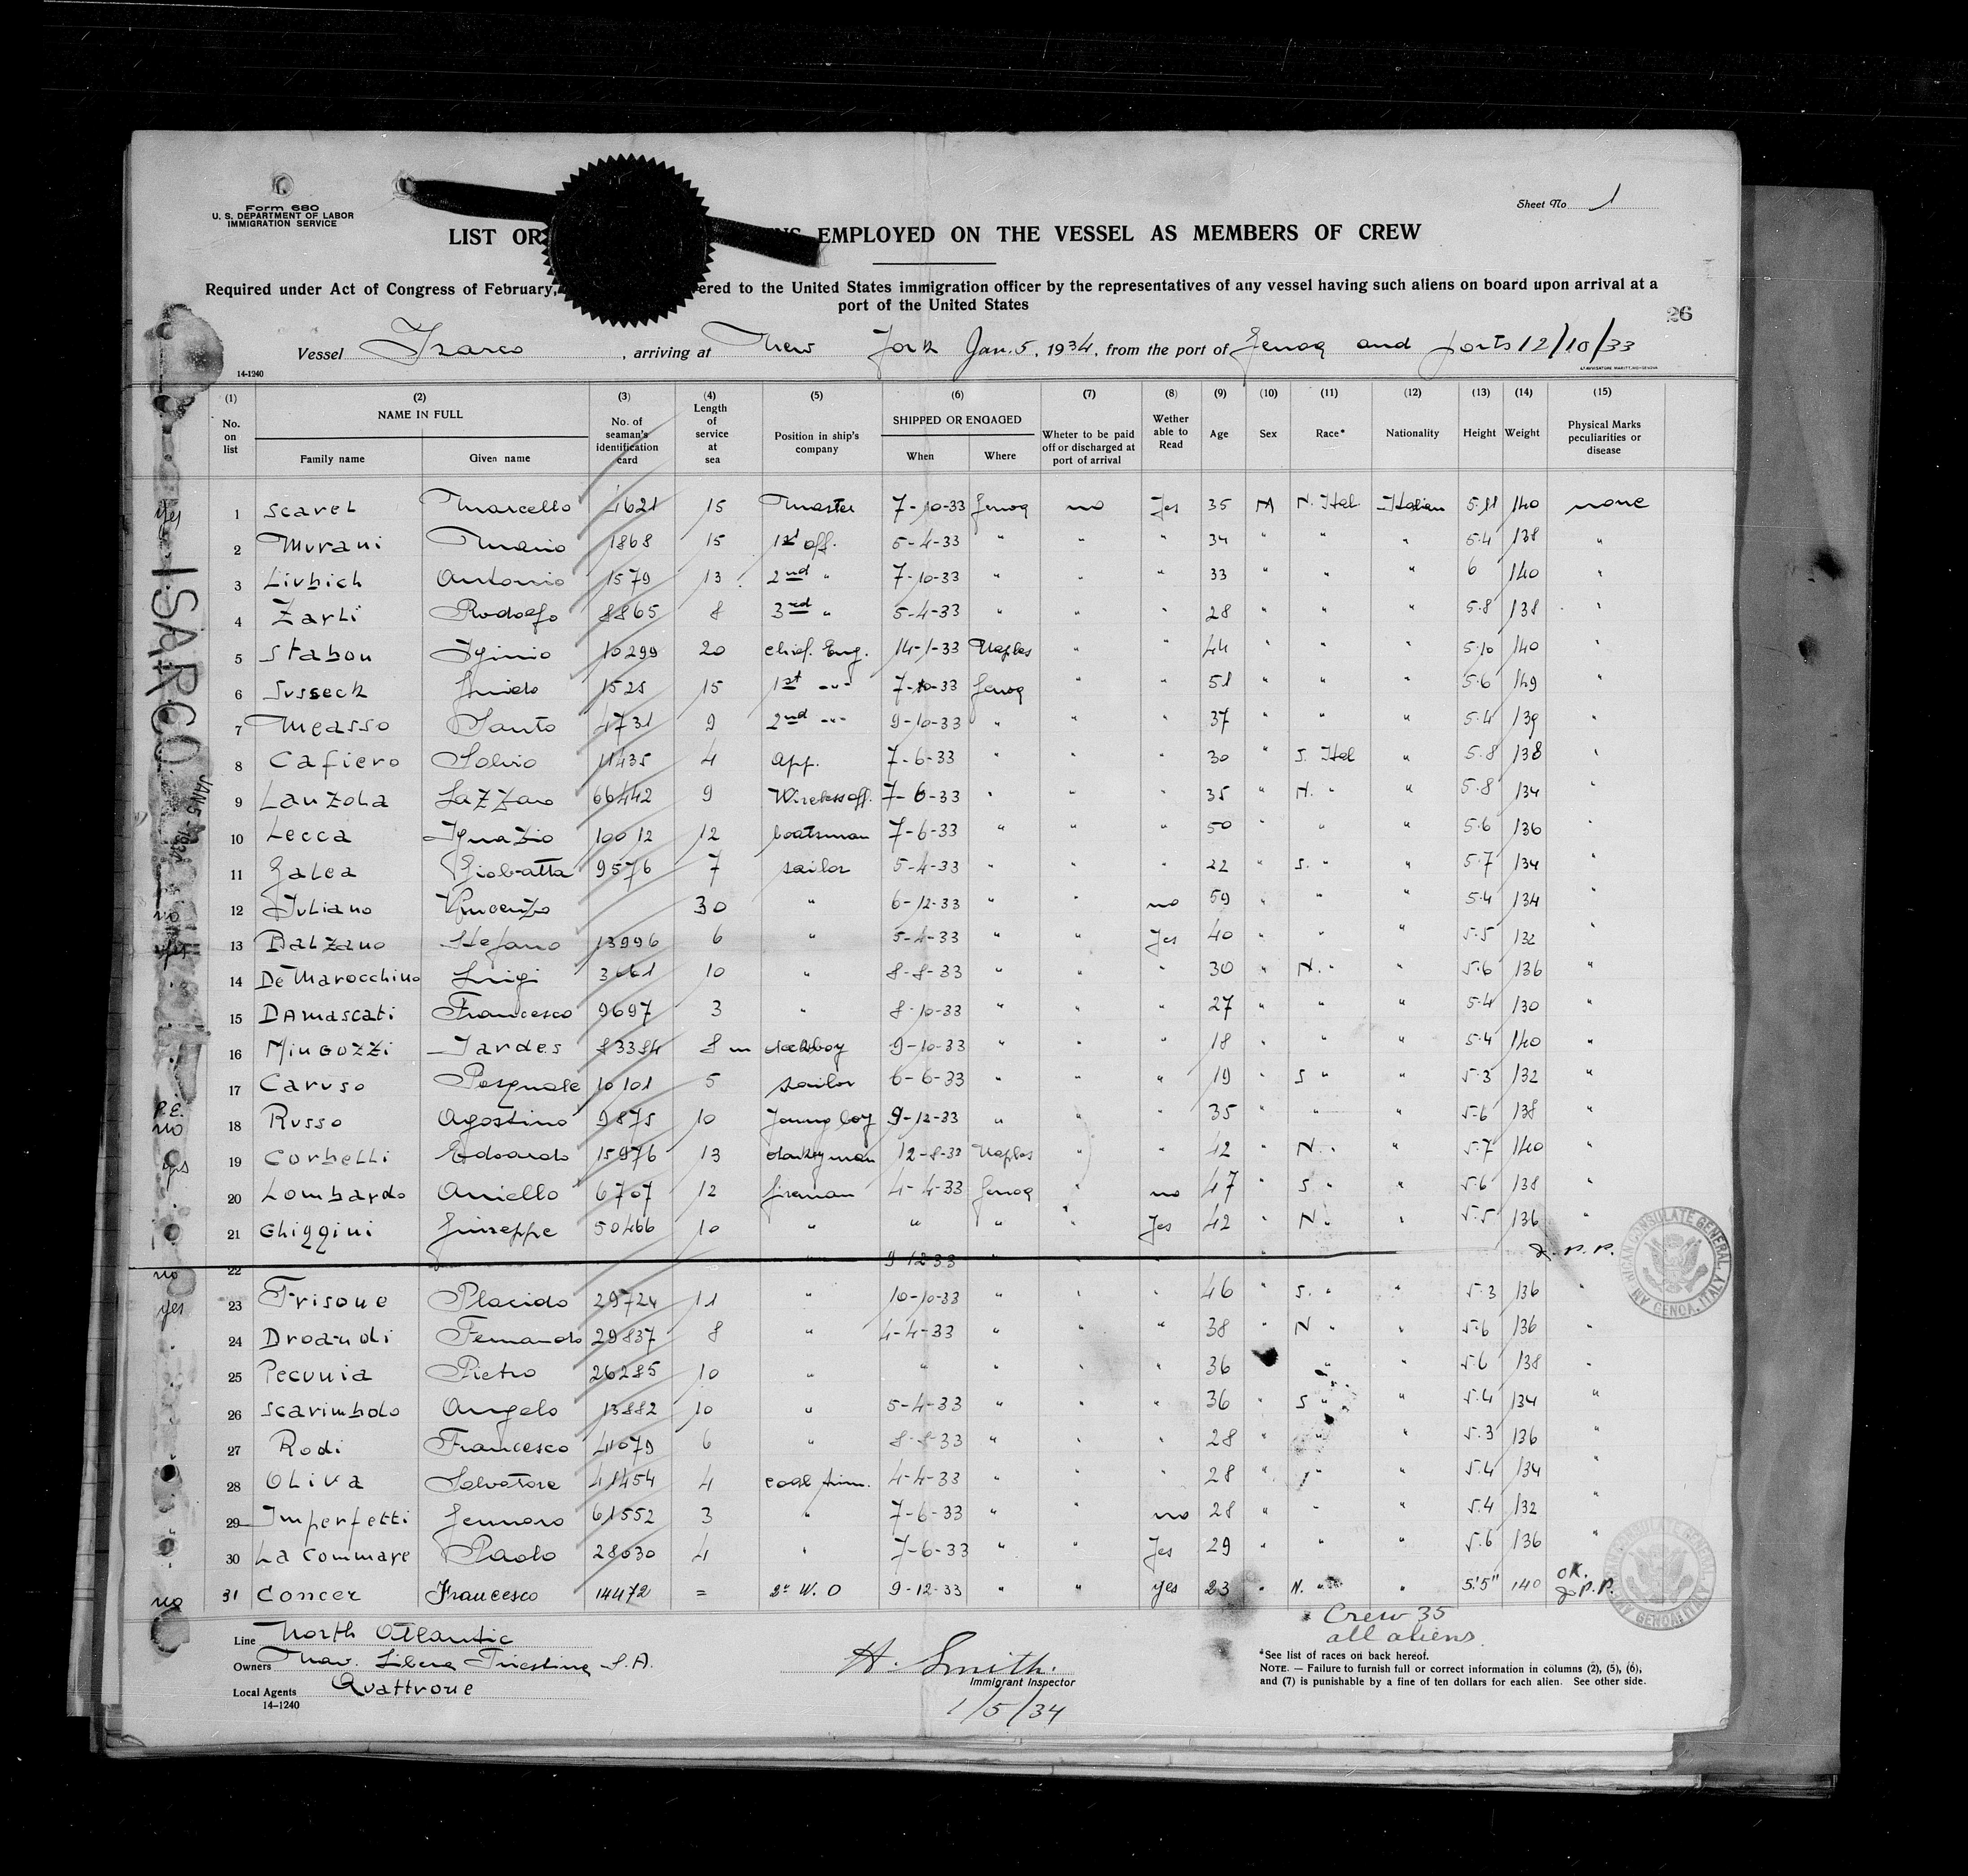 Form 680
U. S. DEPARTMENT OF LABOR
IMMIGRATION SERVICE
Sheet No 1
LIST OR EMPLOYED ON THE VESSEL AS MEMBERS OF CREW
Required under Act of Congress of February, ered to the United States immigration officer by the representatives of any vessel having such aliens on board upon arrival at a
port of the United States
26
Vessel Isarco, arriving at New York Jan. 5, 1934, from the port of Genoa and ports 12/10/33
14-1240
(1) (2) (3) (4) (5) (6) (7) (8) (9) (10) (11) (12) (13) (14) (15)
No. on list NAME IN FULL Family name Given name No. of seaman's identification card Length of service at sea Position in ship's company SHIPPED OR ENGAGED When Where Wheter to be paid off or discharged at port of arrival Wether able to Read Age Sex Race* Nationality Height Weight Physical Marks peculiarities or disease
yes 1 Scarel Marcello 4621 15 Master 7-10-33 Genoa no Yes 35 M N. Ital Italian 5.11 140 none
2 Murani Mario 1868 15 1st off. 5-4-33 " " " 34 " " " 5.4 138 "
3 Livbich Antonio 1579 13 2nd " 7-10-33 " " " 33 " " " 6 140 "
4 Zarli Rodolfo 8865 8 3rd " 5-4-33 " " " 28 " " " 5.8 138 "
5 Stabon Iginio 10299 20 chief. Eng. 14-1-33 Naples " " 44 " " " 5.10 140 "
6 Susseck Guido 1525 15 1st -"- 7-10-33 Genoa " " 51 " " " 5.6 149 "
7 Measso Santo 4731 9 2nd -"- 9-10-33 " " " 37 " " " 5.4 139 "
8 Cafiero Salvio 11435 4 app. 7-6-33 " " " 30 " S. Ital " 5.8 138 "
9 Lanzola Lazzaro 66442 9 Wireless off. 7-6-33 " " " 35 " N. " " 5.8 134 "
10 Lecca Ignazio 10012 12 boatsman 7-6-33 " " " 50 " " " 5.6 136 "
11 Galea Giobatta 9576 7 sailor 5-4-33 " " " 22 " S. " " 5.7 134 "
no 12 Iuliano Vincenzo 30 " 6-12-33 " " no 59 " " " 5.4 134 "
yes 13 Balzano Stefano 13996 6 " 5-4-33 " " Yes 40 " " " 5.5 132 "
14 De Marocchino Luigi 3661 10 " 8-8-33 " " " 30 " N. " " 5.6 136 "
15 Damascati Francesco 9697 3 " 8-10-33 " " " 27 " " " 5.4 130 "
16 Mingozzi Jardes 83384 8 m deckboy 9-10-33 " " " 18 " " " 5.4 140 "
17 Caruso Pasquale 10101 5 sailor 6-6-33 " " " 19 " S " " 5.3 132 "
P.E. no 18 Russo Agostino 9875 10 Young boy 9-12-33 " " " 35 " " " 5.6 138 "
yes 19 Corbelli Edoardo 15976 13 donkeyman 12-8-32 Naples " 42 " N. " " 5.7 140 "
20 Lombardo Aniello 6707 12 fireman 4-4-33 Genoa " no 47 " S " " 5.6 138 "
21 Ghiggini Giuseppe 50466 10 " " " " Yes 42 " N " " 5.5 136 "
no 22 " 9 12 33 " P.P.
yes 23 Frisone Placido 29724 11 " 10-10-33 " " " 46 " S. " " 5.3 136 "
24 Droandi Fernando 29837 8 " 4-4-33 " " " 38 " N " " 5.6 136 "
25 Pecunia Pietro 26285 10 " " " " " 36 " " 5.6 138 "
26 Scarimbolo Angelo 13882 10 " 5-4-33 " " " 36 " S " " 5.4 134 "
27 Rodi Francesco 41079 6 " 8-8-33 " " " 28 " " " 5.3 136 "
28 Oliva Salvatore 41454 4 coal trim. 4-4-33 " " " 28 " " " 5.4 134 "
29 Imperfetti Gennaro 61552 3 " 7-6-33 " " no 28 " " " 5.4 132 "
30 La Commare Paolo 28030 4 " 7-6-33 " " Yes 29 " " " 5.6 136 "
no 31 Concer Francesco 14472 = 2° W. O 9-12-33 " " yes 23 " N. " " 5'5" 140 OK. P.P.
ISARCO
JAN 5 1934
AMERICAN CONSULATE GENERAL GENOA, ITALY
Crew 35
all aliens.
Line North Atlantic
Owners Nav. Libera Triestina S.A.
Local Agents Quattrone
14-1240
H. Smith.
Immigrant Inspector
1/5/34
*See list of races on back hereof.
NOTE. — Failure to furnish full or correct information in columns (2), (5), (6),
and (7) is punishable by a fine of ten dollars for each alien. See other side.